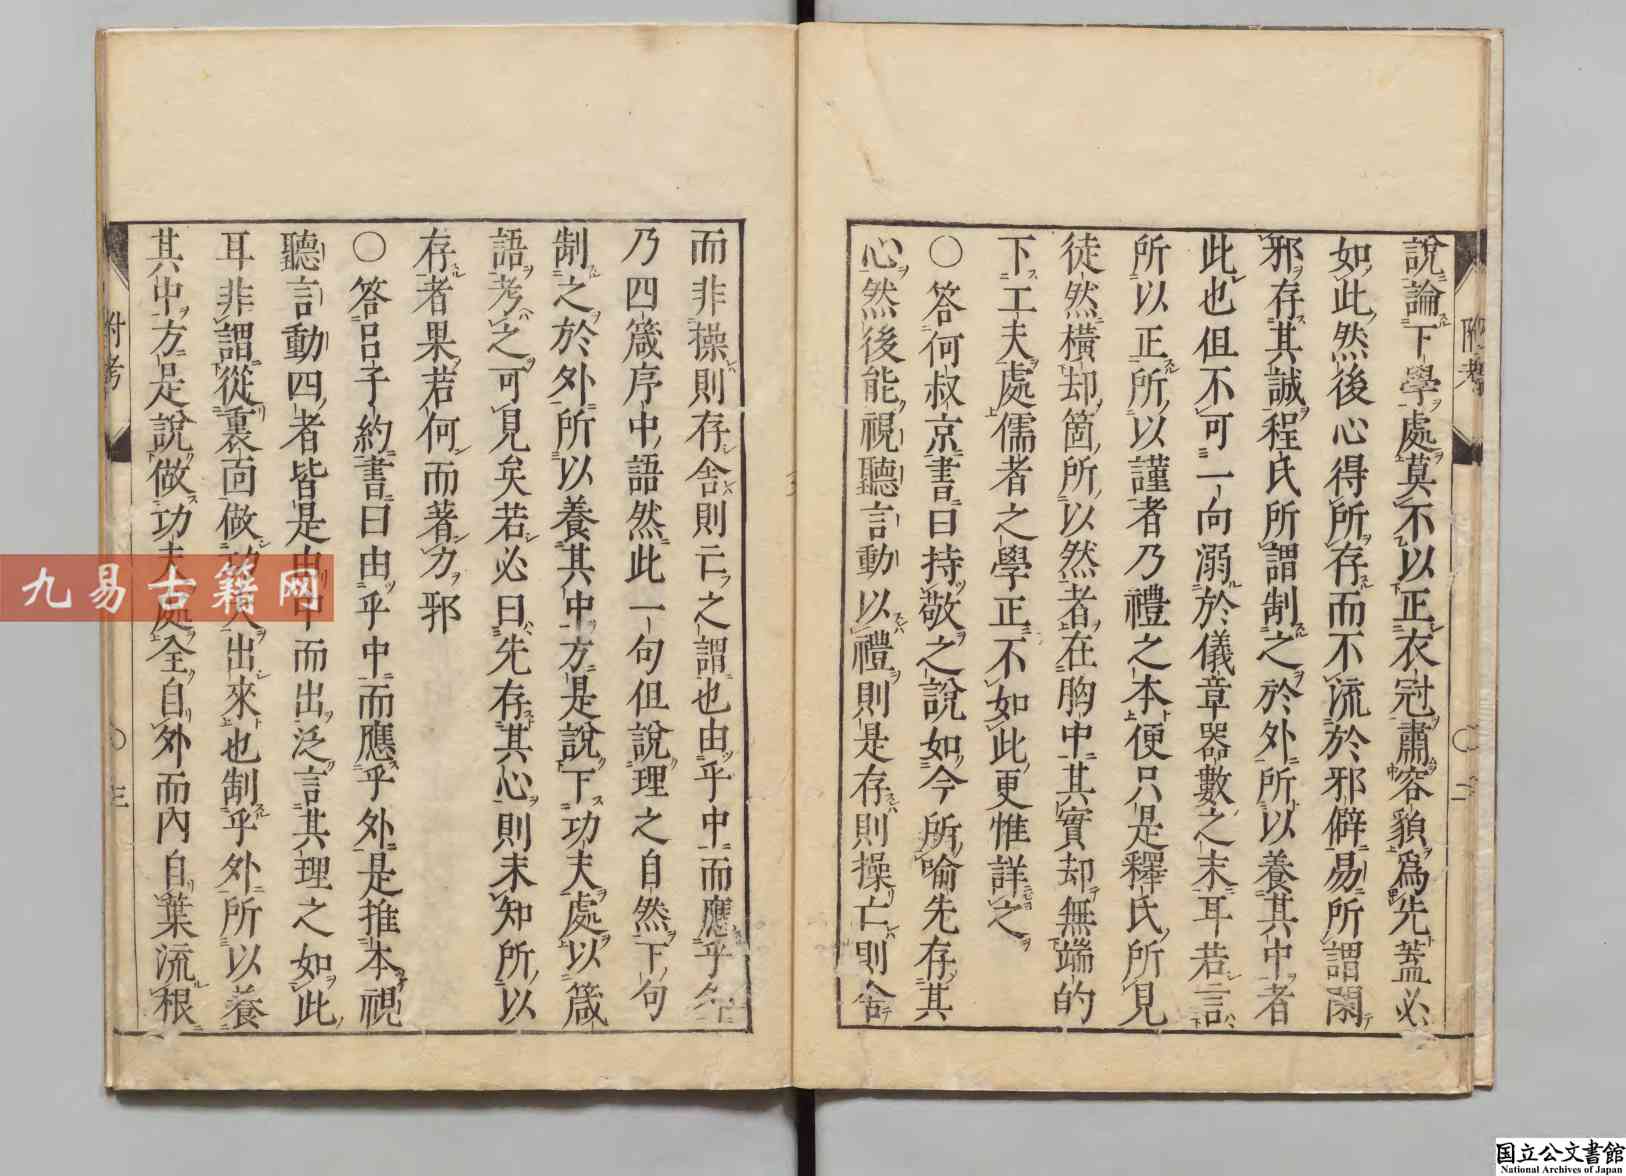 說論下學處莫不以正衣冠肅容貌爲先蓋必
如此然後心得所存而不流於邪僻易所謂閑
邪存其誠程氏所謂制之於外所以養其中者
此也但不可一向溺於儀章器數之末耳若言
所以正所以謹者乃禮之本便只是釋氏所見
徒然橫却箇所以然者在胸中其實却無端的
下工夫處儒者之學正不如此更惟詳之
〇答何叔京書曰持敬之說如今所喩先存其
心然後能視聽言動以禮則是存則操亡則舍
附考
〇二
而非操則存舍則亡之謂也由乎中而應乎外
乃四箴序中語然此一句但說理之自然下句
制之於外所以養其中方是說下功夫處以箴
語考之可見矣若必曰先存其心則未知所以
存者果若何而著力邪
〇答呂子約書曰由乎中而應乎外是推本視
聽言動四者皆是由中而出泛言其理之如此
耳非謂從裏面做功夫出來也制乎外所以養
其中方是說做功夫處全自外而內自葉流根
附考
〇三
九易古籍网
国立公文書館
National Archives of Japan